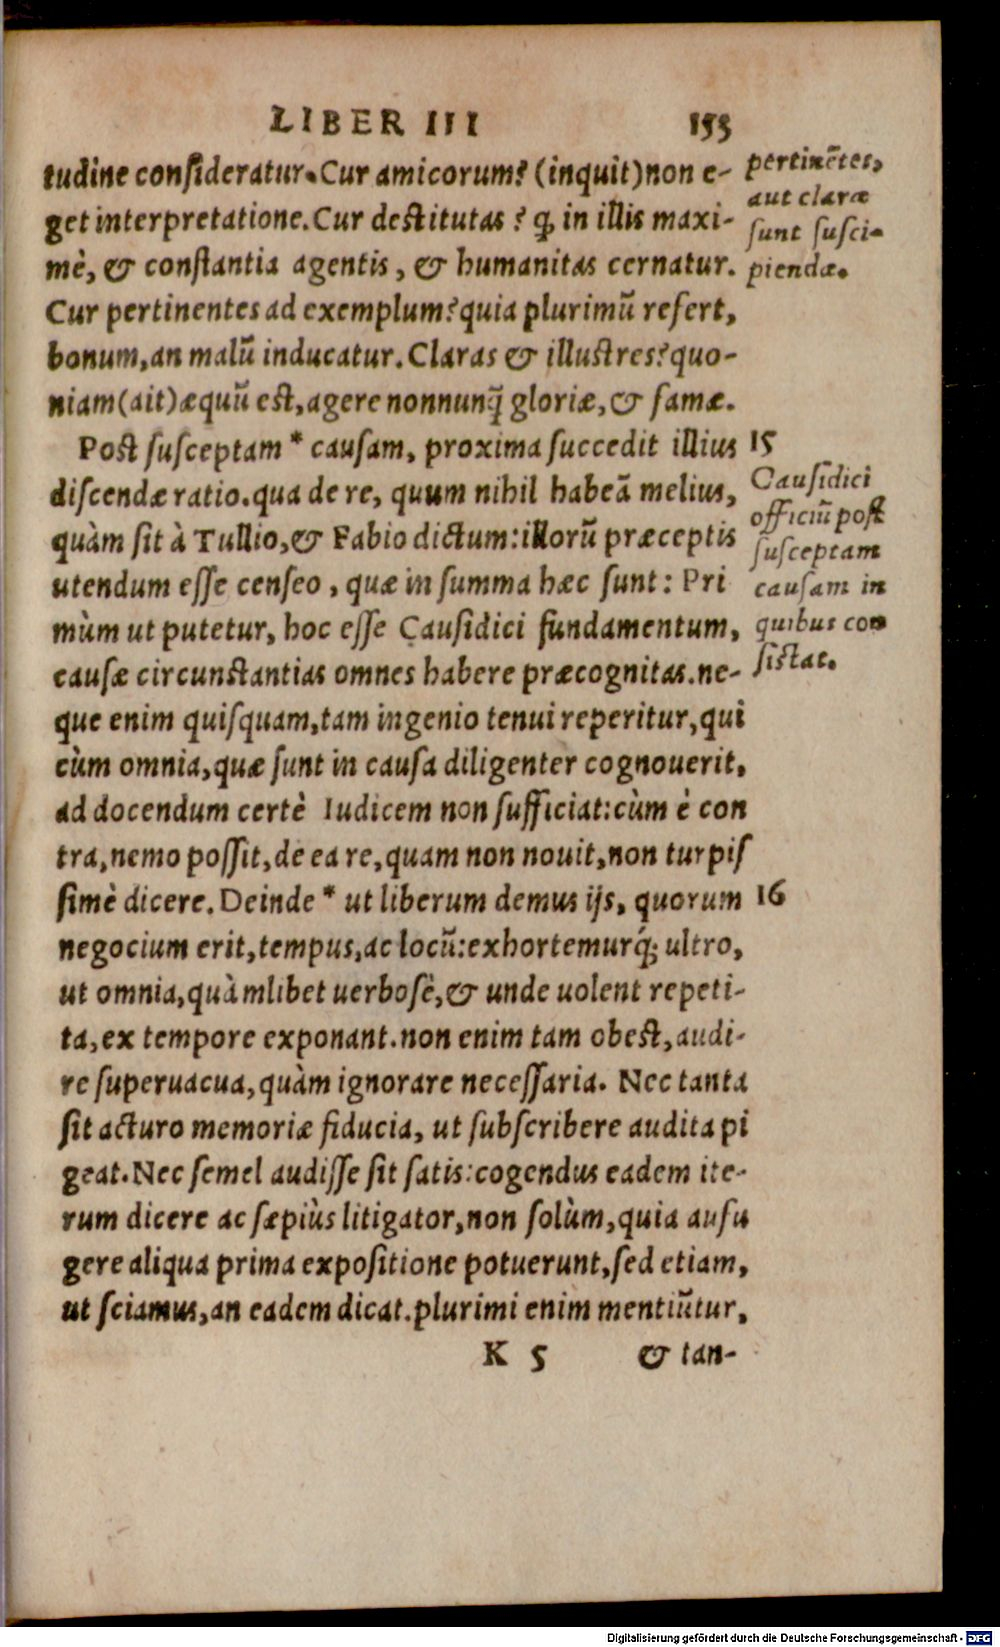 LIBER III 153
tudine consideratur. Cur amicorum? (inquit) non e-
get interpretatione. Cur destitutas? ꝙ in illis maxi-
mè, & constantia agentis, & humanitas cernatur.
Cur pertinentes ad exemplum? quia plurimū refert,
bonum, an malū inducatur. Claras & illustres? quo-
niam (ait) æquū est, agere nonnunq̄ gloriæ, & famæ.
Post susceptam * causam, proxima succedit illius
discendæ ratio. qua de re, quum nihil habeā melius,
quàm sit à Tullio, & Fabio dictum: illorū præceptis
utendum esse censeo, quæ in summa hæc sunt: Pri
mùm ut putetur, hoc esse Causidici fundamentum,
causæ circunstantias omnes habere præcognitas. ne-
que enim quisquam, tam ingenio tenui reperitur, qui
cùm omnia, quæ sunt in causa diligenter cognouerit,
ad docendum certè Iudicem non sufficiat: cùm è con
tra, nemo possit, de ea re, quam non nouit, non turpis
simè dicere. Deinde * ut liberum demus ijs, quorum
negocium erit, tempus, ac locū: exhortemurq́; ultro,
ut omnia, quàmlibet uerbosè, & unde uolent repeti-
ta, ex tempore exponant. non enim tam obest, audi-
re superuacua, quàm ignorare necessaria. Nec tanta
sit acturo memoriæ fiducia, ut subscribere audita pi
geat. Nec semel audisse sit satis: cogendus eadem ite-
rum dicere ac sæpiùs litigator, non solùm, quia aufu
gere aliqua prima expositione potuerunt, sed etiam,
ut sciamus, an eadem dicat. plurimi enim mentiūtur,
K 5 & tan-
pertinētes,
aut claræ
sunt susci-
piendæ.
15
Causidici
officiū post
susceptam
causam in
quibus con
sistat.
16
Digitalisierung gefördert durch die Deutsche Forschungsgemeinschaft - DFG